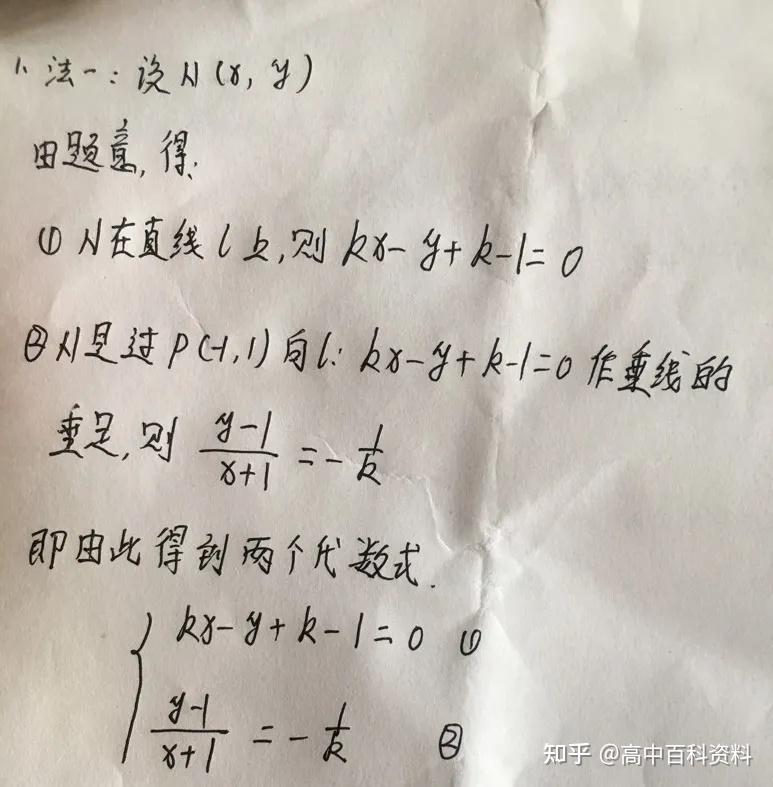 1、法一：设N(x, y)
由题意，得:
① N在直线l上,则 kx-y+k-1=0
② N是过P(-1,1)向l: kx-y+k-1=0作垂线的
垂足,则 \frac{y-1}{x+1} = -\frac{1}{k}
即由此得到两个代数式.
kx-y+k-1=0 ①
\frac{y-1}{x+1} = -\frac{1}{k} ②
知乎 @高中百科资料